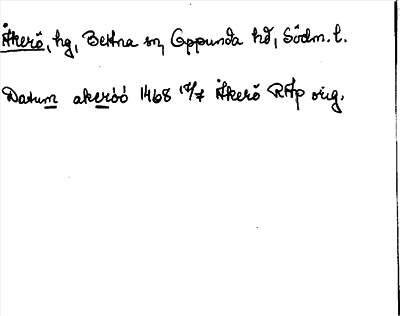 Åkerö, hg, Bettna sn, Oppunda hd, Södm. l.
Datum akeröö 1468 17/7 Åkerö RAp orig.